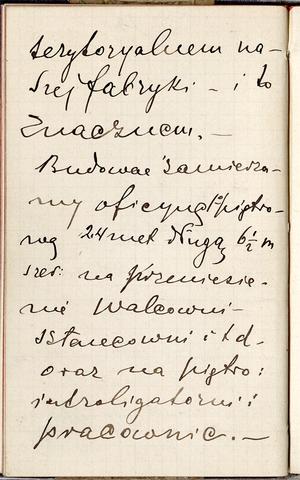 terytoryalnem na-
szej fabryki - i to
znacznem. -
Budować zamierza-
my oficynę 1o piętro-
wą 24 met długą, 6 1/2 m
szer: na przeniesie-
nie Walcowni -
i t d -
oraz na piętro:
introligatorni i
pracownic. -